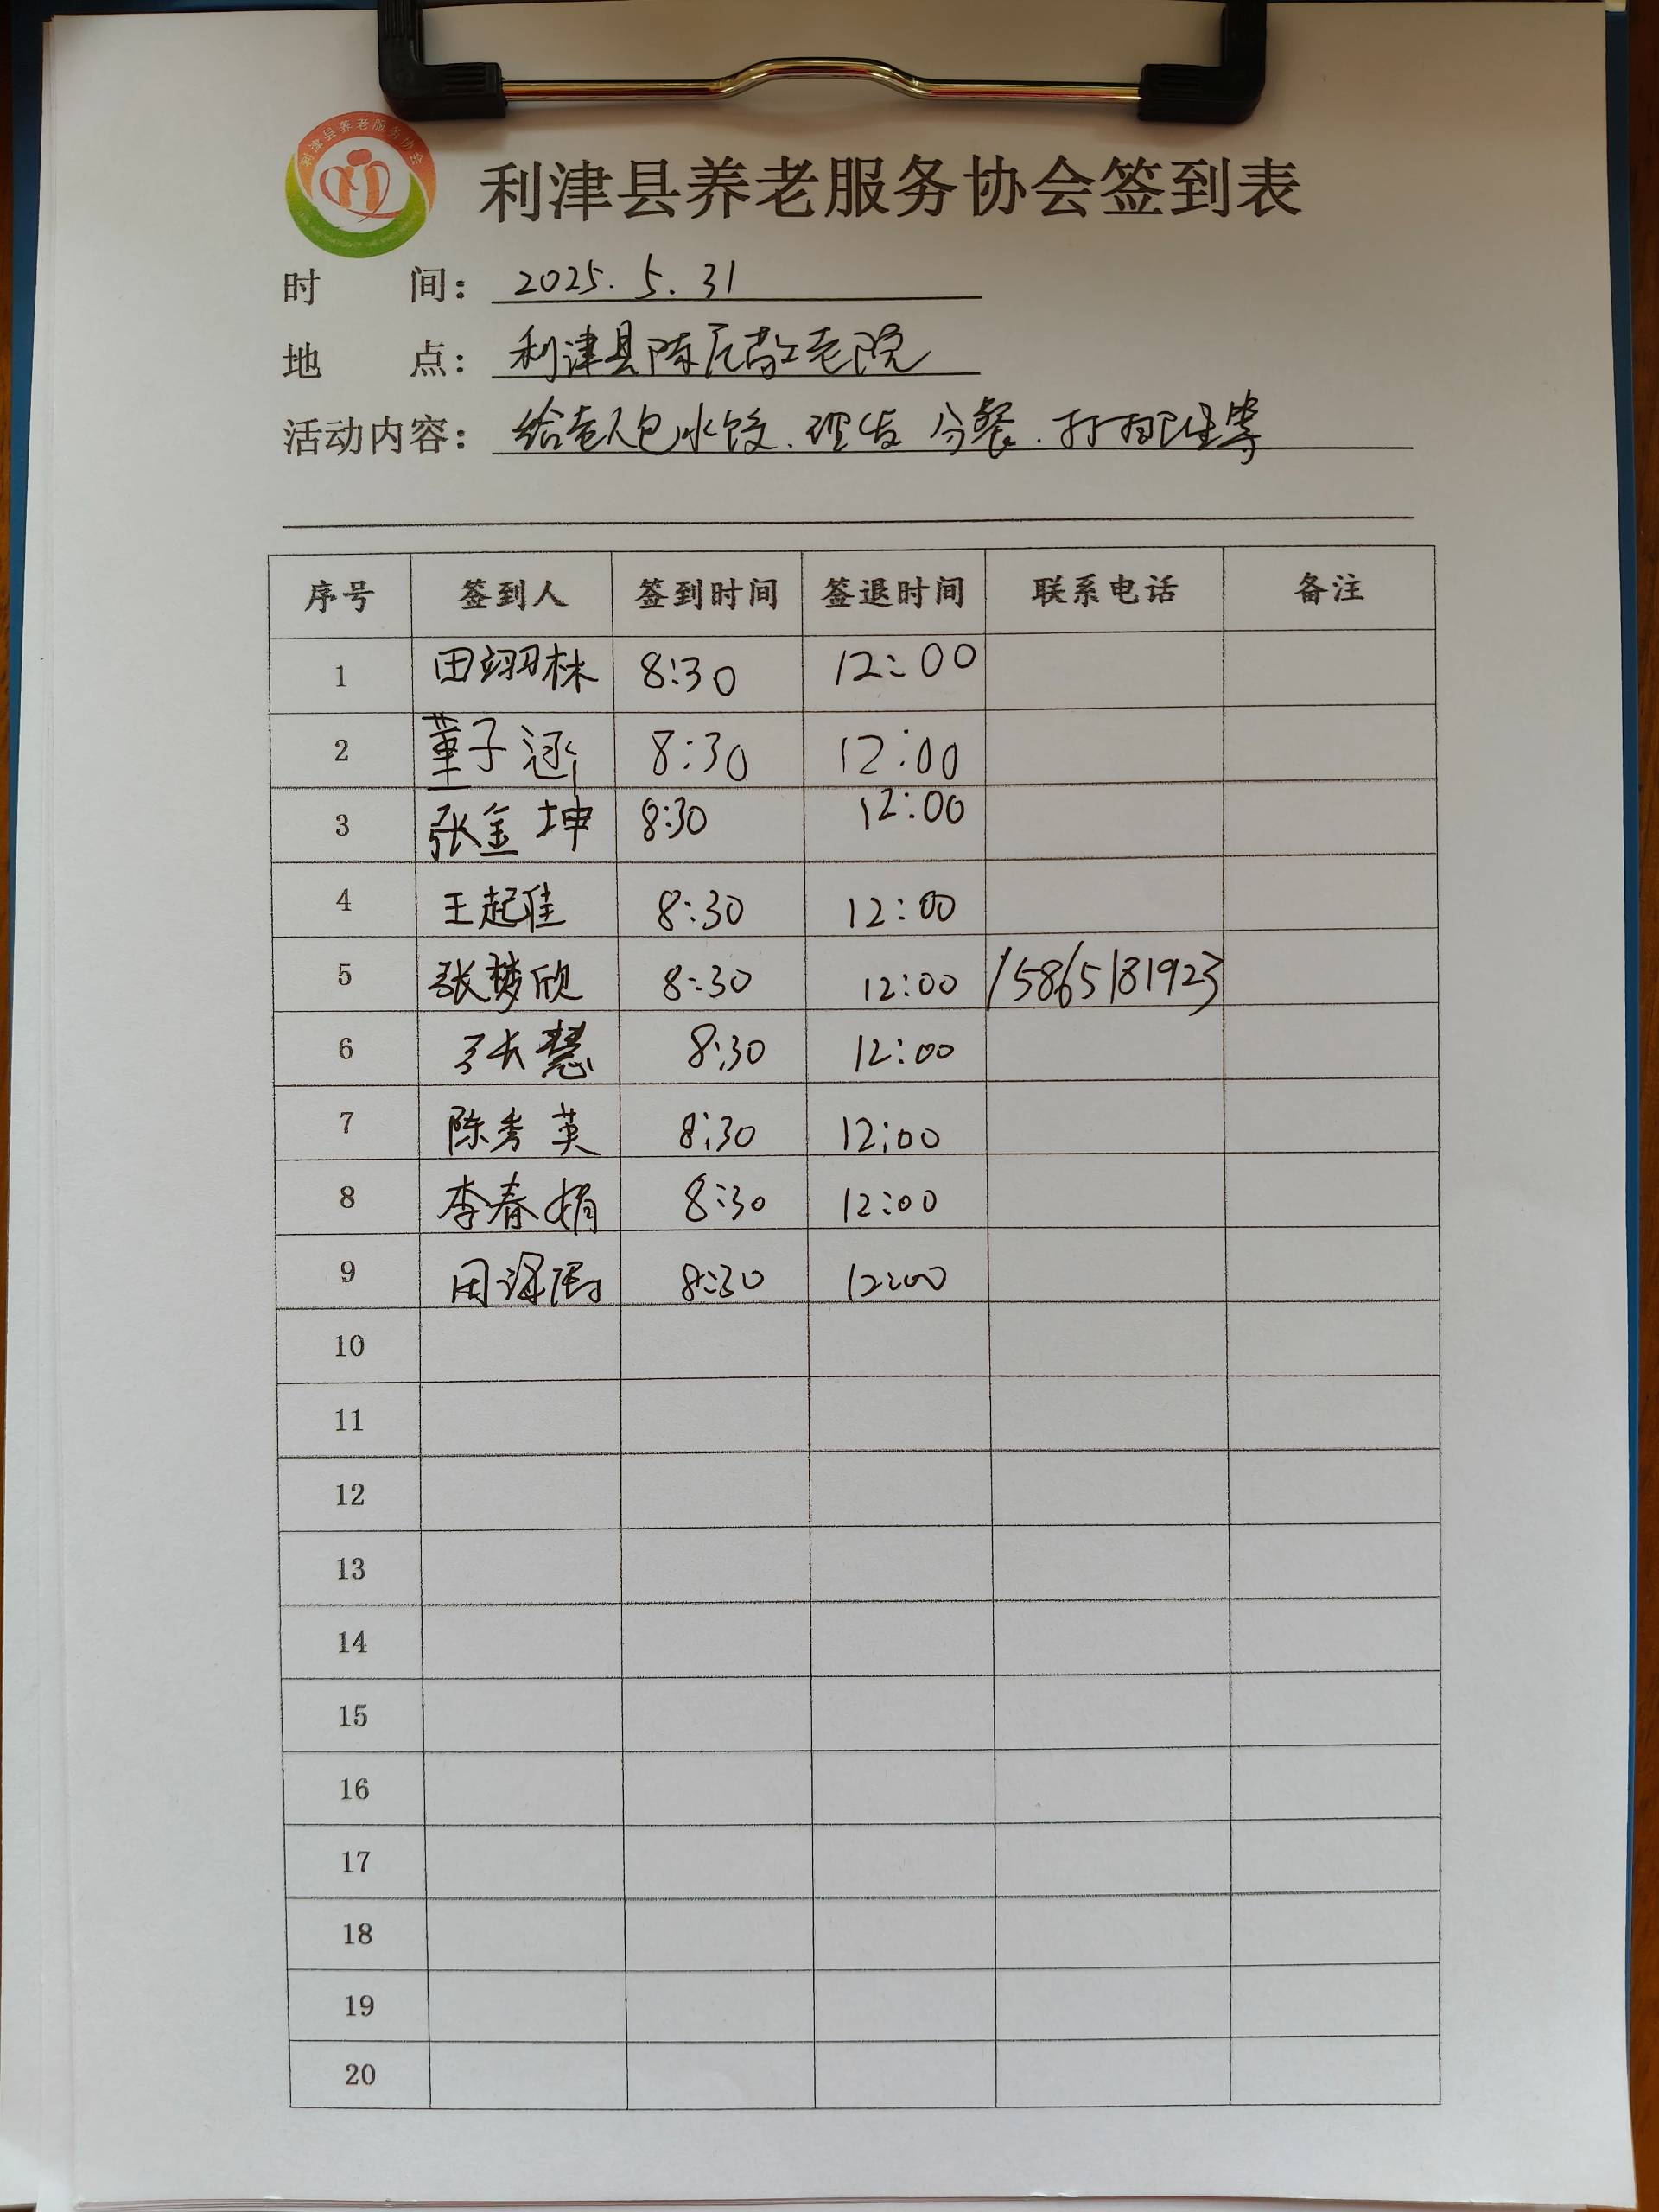 利津县养老服务协会
利津县养老服务协会签到表
时 间： 2025.5.31
地 点： 利津县陈庄敬老院
活动内容： 给老人包水饺、理发 分餐、打扫卫生等
序号 签到人 签到时间 签退时间 联系电话 备注
1 田翊林 8:30 12:00
2 董子涵 8:30 12:00
3 张金坤 8:30 12:00
4 王起佳 8:30 12:00
5 张梦欣 8:30 12:00 15865181923
6 张慧 8:30 12:00
7 陈秀英 8:30 12:00
8 李春娟 8:30 12:00
9 8:30 12:00
10
11
12
13
14
15
16
17
18
19
20